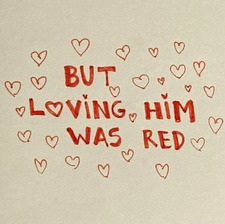 BUT
LOViNG HiM
WAS RED